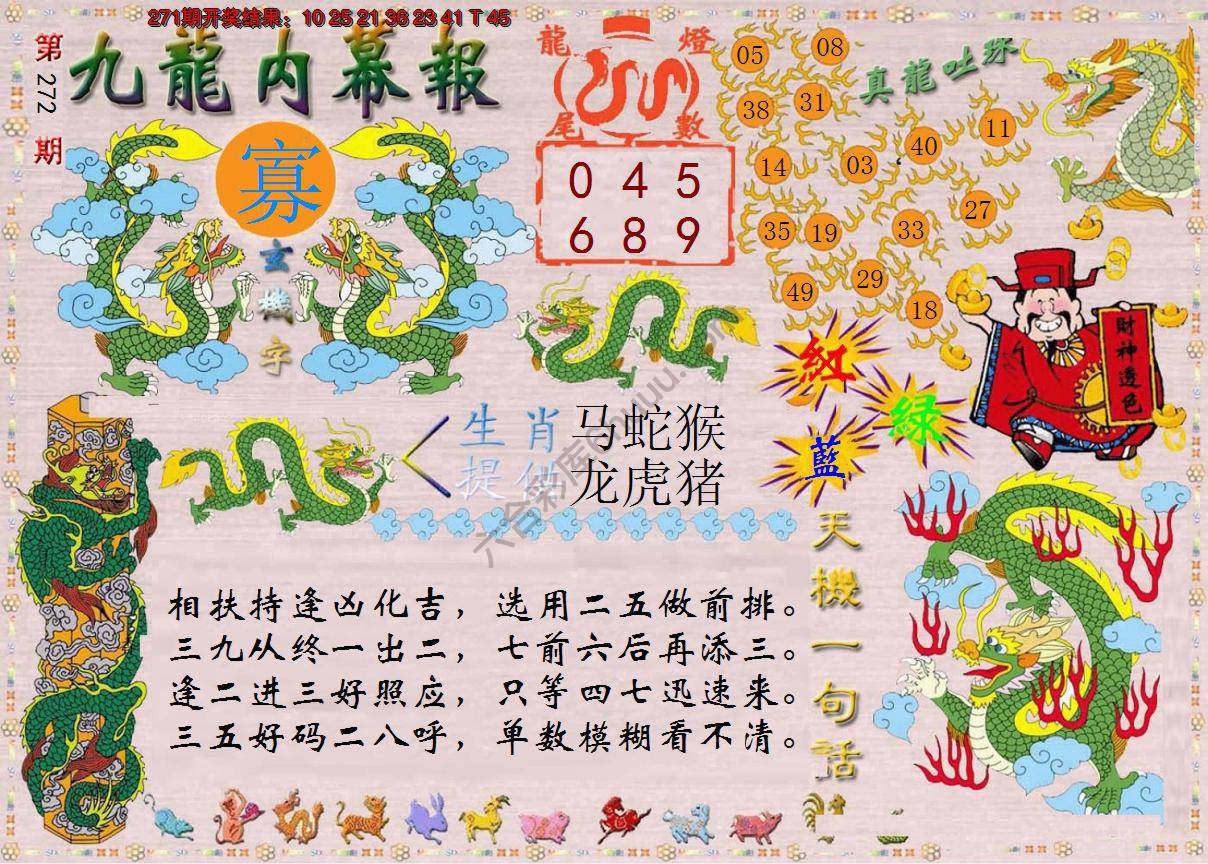 271期开奖结果：10 25 21 36 23 41 T 45
第272期
九龍内幕報
寡
玄機字
龍燈
尾數
0 4 5
6 8 9
真龍吐珠
05 08
38 31
14 03 40 11
35 19 33 27
49 29 18
財神透色
紅
綠
藍
生肖 马蛇猴
提供 龙虎猪
天機一句話
相扶持逢凶化吉，选用二五做前排。
三九从终一出二，七前六后再添三。
逢二进三好照应，只等四七迅速来。
三五好码二八呼，单数模糊看不清。